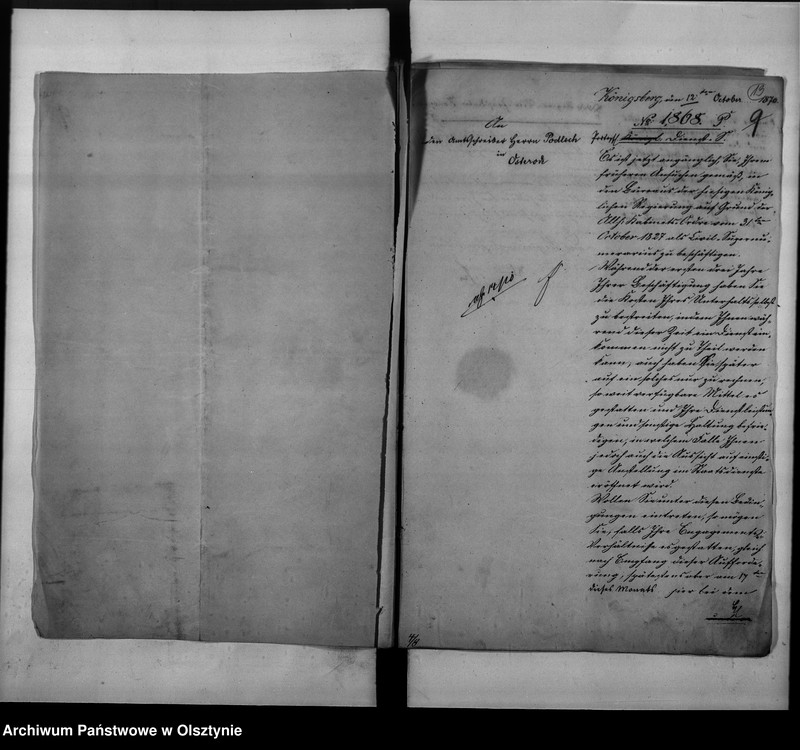 13
Königsberg, den 12ten October 1870.
No. 1868. P
9
An
den Amtschreiber Herrn Podlech
in
Osterode
Dienst-S.
Es ist jetzt angänglich, Sie, Ihrem
früheren Ansuchen gemäß, in
den Büreaus der hiesigen König-
lichen Regierung auf Grund der
Allh. Kabinets-Ordre vom 31ten
October 1827 als Civil-Supernu-
merarius zu beschäftigen.
Während der ersten drei Jahre
Ihrer Beschäftigung haben Sie
die Kosten Ihres Unterhalts selbst
zu bestreiten, indem Ihnen wäh-
rend dieser Zeit ein Dienstein-
kommen nicht zu Theil werden
kann; auch haben Sie später
auf ein solches nur zu rechnen,
so weit verfügbare Mittel es
gestatten und Ihre Dienstleistun-
gen und sonstige Haltung befrie-
digen, in welchem Falle Ihnen
jedoch auch die Aussicht auf einsti-
ge Anstellung im Staatsdienste
eröffnet wird.
Wollen Sie unter diesen Bedin-
gungen eintreten, so mögen
Sie, falls Ihre Engagements-
Verhältnisse es gestatten, gleich
nach Empfang dieser Aufforde-
rung, spätestens aber am 17ten
dieses Monats hier bei dem
Archiwum Państwowe w Olsztynie